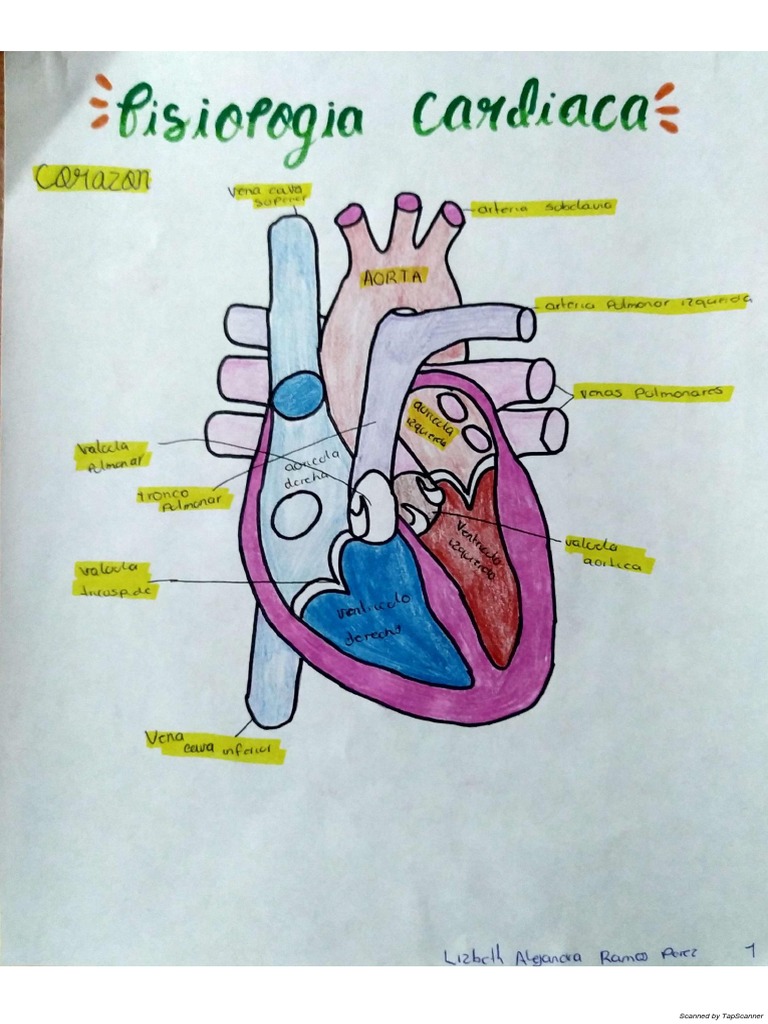 Fisiologia Cardiaca
Corazon
Vena cava
superior
arteria subclavia
AORTA
arteria Pulmonar izquierda
venas Pulmonares
auricola
izquierda
valvula
Pulmonar
auricola
derecha
tronco
Pulmonar
Ventriculo
izquierdo
valvula
aortica
valvula
tricuspide
ventriculo
derecho
Vena
cava inferior
Lizbeth Alejandra Ramos Perez 1
Scanned by TapScanner